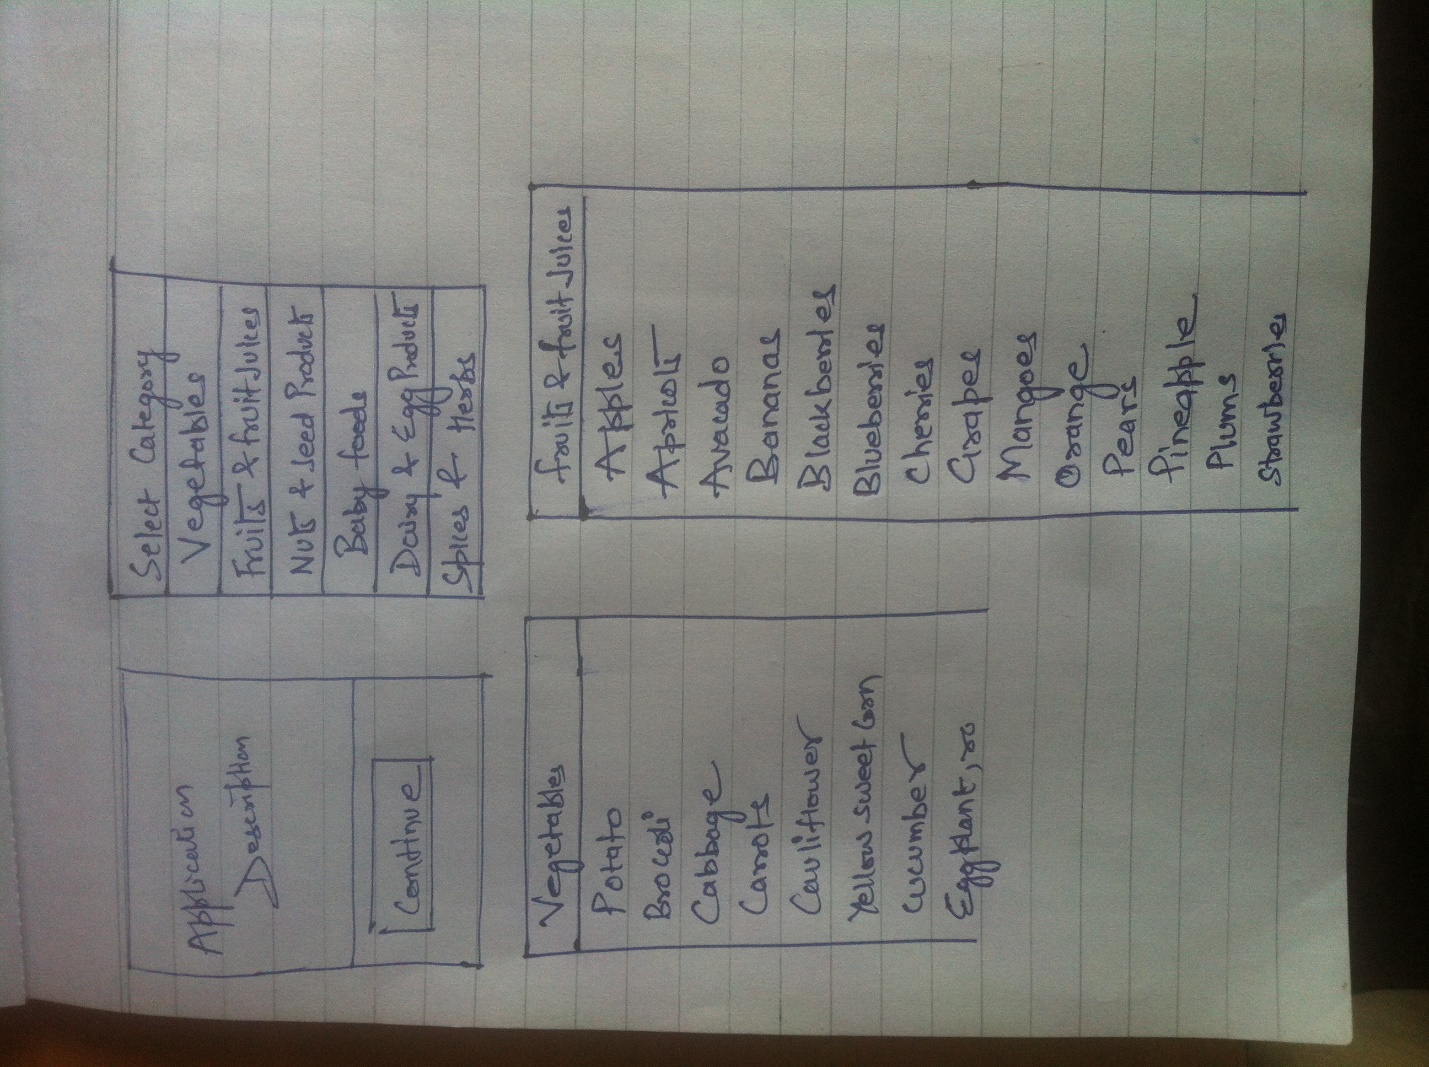 Application
Description
Continue
Select Category
Vegetables
Fruits & fruit Juices
Nuts & Seed Products
Baby foods
Dairy & Egg Products
Spices & Herbs
Vegetables
Potato
Brocoli
Cabbage
Carrots
Cauliflower
Yellow sweet Corn
Cucumber
Eggplant,
fruits & fruit Juices
Apples
Apricots
Avacado
Bananas
Blackberries
Blueberries
Cherries
Grapes
Mangoes
Orange
Pears
Pineapple
Plums
Strawberries